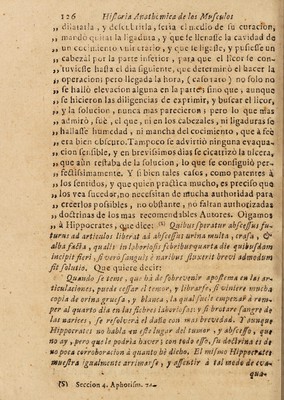 126 Historia Anathomica de los Musculos
,, dilatarla, y descubrirla, seria el medio de su curacion,
,, mandò quitar la ligadura, y que se llenasse la cavidad de
,, un cocimiento vulnerario, y que se ligasse, y pusiesse un
,, cabezal por la parte inferior, para que el licor se con-
,, tuviesse hasta el dia siguiente, que determinò el hacer la
,, operacion; pero llegada la hora, (caso raro) no solo no
,, se hallò elevacion alguna en la parte; sino que, aunque
,, se hicieron las diligencias de exprimir, y buscar el licor,
,, y la solucion, nunca mas parecieron; pero lo que mas
,, admirò, fuè, el que, ni en los cabezales, ni ligaduras se
,, hallasse humedad, ni mancha del cocimiento, que à feè
,, era bien obscuro. Tampoco se advirtiò ninguna evaqua-
,, cion sensible, y en brevissimos dias se cicatrizò la ulcera,
,, que aùn restaba de la solucion, lo que se consiguiò per-
,, fectissimamente. Y si bien tales casos, como patentes à
,, los sentidos, y que quien practica mucho, es preciso que
,, los vea suceder, no necessitan de mucha authoridad para
,, creerlos possibles, no obstante, no faltan authorizadas
,, doctrinas de los mas recomendables Autores. Oigamos
,, à Hippocrates, que dice: (S) Quibus speratur abscessus fu-
turus ad articulos liberat ab abscessu urina multa, crasa, &
alba facta, qualis in laboriosis febribus quarta die quibusdam
incipit fieri, si vero sanguis è naribus fluxerit brevi admodum
fit solutio. Que quiere decir:
Quando se teme, que hà de sobrevenir apostema en las ar-
ticulaciones, puede cessar el temor, y librarse, si viniere mucha
copia de orina gruesa, y blanca, la qual suele empezar à rom-
per al quarto dia en las fiebres laboriosas: y si brotare sangre de
las narices, se resolverà el daño con mas brevedad. Y aunque
Hippocrates no habla en este lugar del tumor, y abscesso, que
no ay, pero que le podria haver; con todo esso, su doctrina es de
no poca corroboracion à quanto hè dicho. El mismo Hippocrates
muestra igualmente arrimarse, y assentir à tal modo de eva-
qua-
(S) Seccion 4. Aphorism.